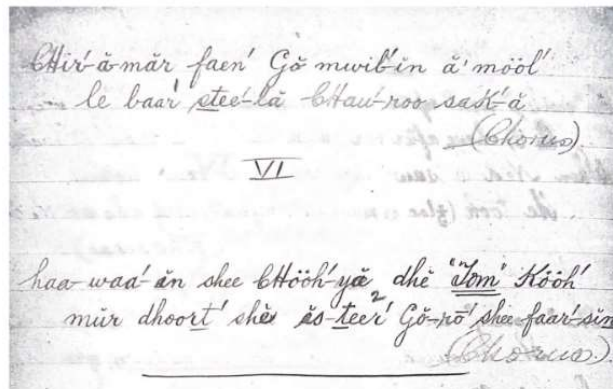 CHir'-ă-măr faen' Gŏ mwil'-ĭn ă' mööl'
le baar' stee'-lă CHau'-roo sak'-ă
(Chorus)
VI
haa-waa'-ăn shee CHööh'-yă dhĕ "Tom" Kööh'
mŭr dhoort' shĕ ĕs-teer'² Gŏ-rō' shee faar'-sin
(Chorus)